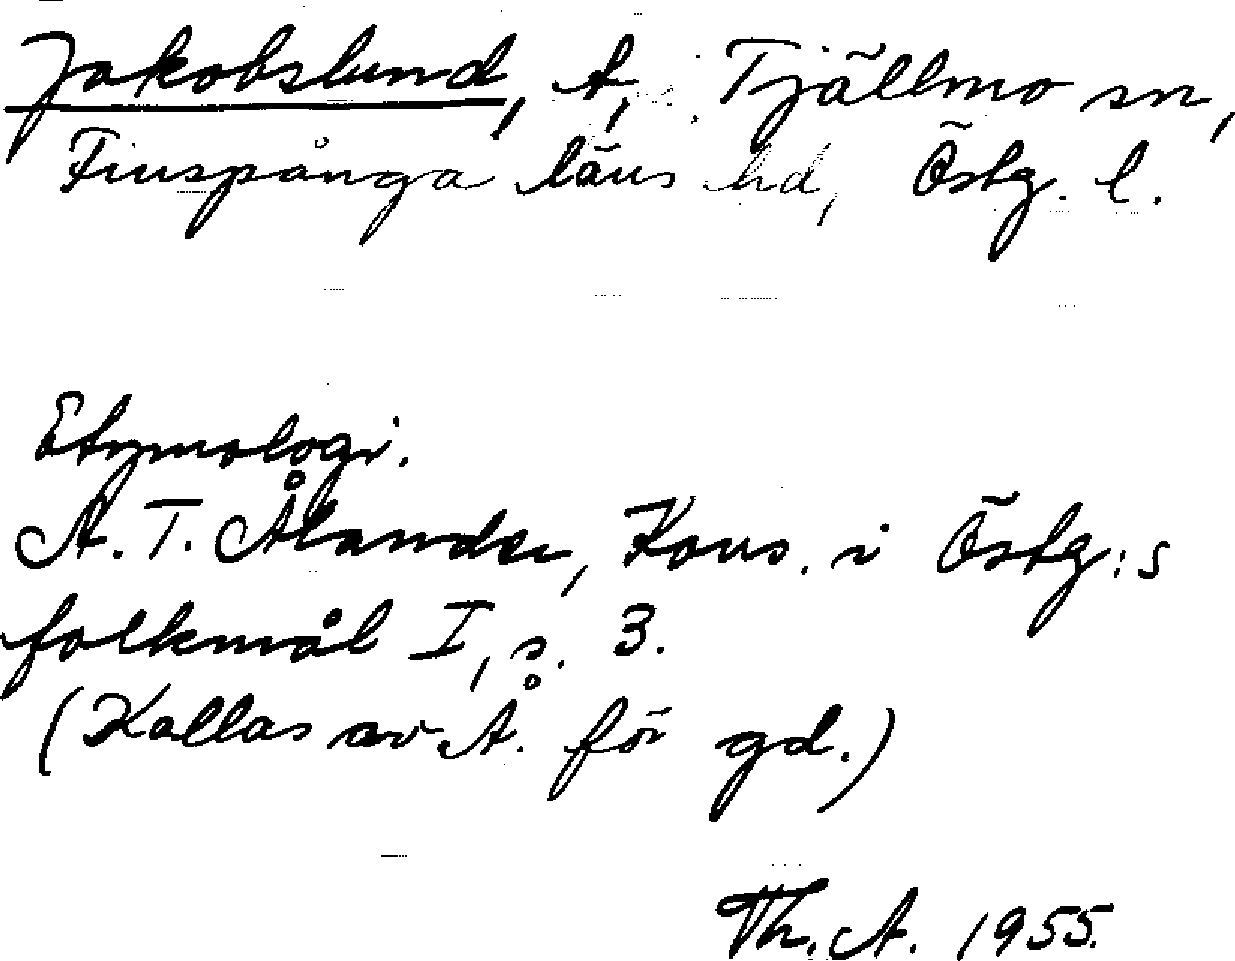 Jakobslund, t, Tjällmo sn,
Finspånga läns hd, Östg. l.
Etymologi.
A. T. Ålander, Kons. i Östg:s
folkmål I, s. 3.
(Kallas av Å. för gd.)
Th. A. 1955.